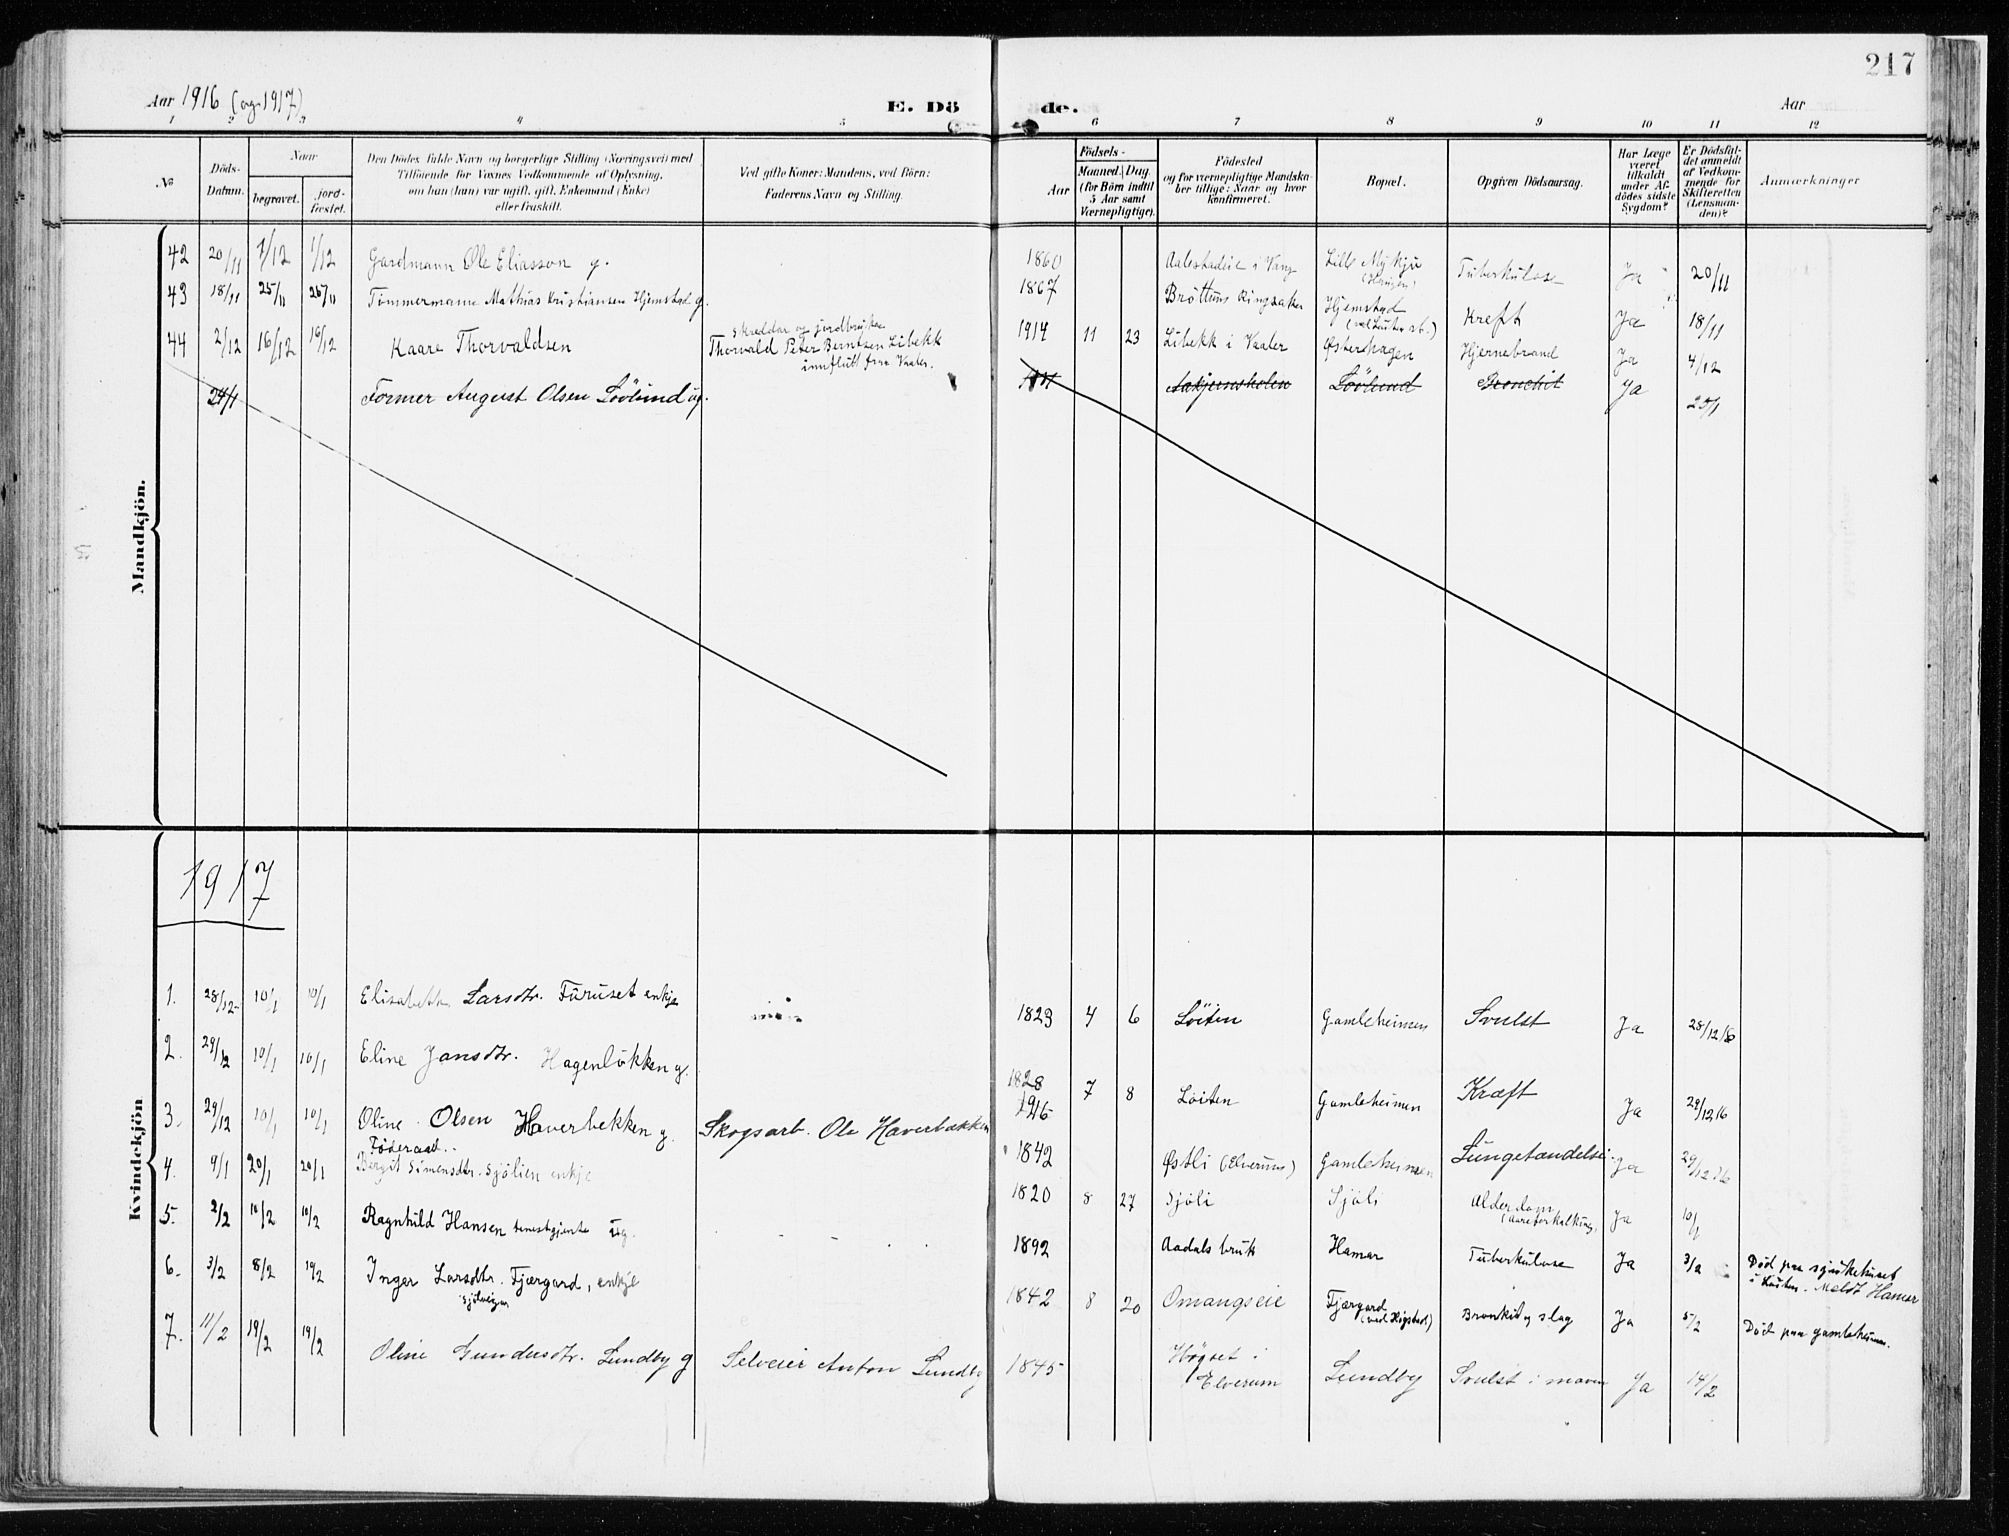 217
Aar 1916 (og 1917)
E. Dö de.
Aar
1 2 3 4 5 6 7 8 9 10 11 12
No
Döds-
Datum.
Naar
begravet.
jord-
fæstet.
Den Dödes fulde Navn og borgerlige Stilling (Næringsvei) med
Tilföiende for Voxnes Vedkommende af Oplysning,
om han (hun) var ugift, gift, Enkemand (Enke)
eller fraskilt.
Ved gifte Koner: Mandens, ved Börn:
Faderens Navn og Stilling.
Födsels-
Aar
Maaned. Dag.
(for Börn indtil
5 Aar samt
Værnepligtige).
Födested
og for værnepligtige Mandska-
ber tillige: Naar og hvor
konfirmeret.
Bopæl.
Opgiven Dödsaarsag.
Har Læge
været
tilkaldt
under Af-
dödes sidste
Sygdom?
Er Dödsfal-
det anmeldt
af Vedkom-
mende for
Skifteretten
(Lensman-
den)?
Anmærkninger
Mandkjön.
42 20/11 1/12 1/12 Gardmann Ole Eliasson g. 1860 i Vang Lille (Haugen) Tuberkulose Ja 20/11
43 18/11 25/11 26/11 Tömmermann Mathias Kristiansen Hjemstad g. 1867 Bröttum Ringsaker Hjemstad Kreft Ja 18/11
44 2/12 16/12 16/12 Kaare Thorvaldsen
Skreddar og jordbruker
Thorvald Peter Berntsen Libekk
innflutt fraa Vaaler.
1914 11 23 Libekk i Vaaler Østerhagen Hjernebrand Ja 4/12
24/1 Former August Olsen Lövlund ug. Lövlund Bronchit Ja 25/1
Kvindekjön
1917
1. 28/12 10/1 10/1 Elisabeth Larsdtr. Furuset enkje 1823 4 6 Löiten Gamleheimen Svulst Ja 28/12 16
2. 29/12 10/1 10/1 Eline Jansdtr. Hagenlökken g. 1828 7 8 Löiten Gamleheimen Kræft Ja 29/12 16
1916
3. 29/12 10/1 10/1 Oline Olsen Haverbekken g. Skogsarb. Ole Haverbækken 1842 Østli (Elverum) Gamleheimen Lungetændelse Ja 29/12 16
Föderaad.
4. 9/1 20/1 20/1 Bergit Simensdtr. Sjölien enkje 1820 8 27 Sjöli Sjöli Alderdom (aareforkalkning) Ja 10/1
5. 2/2 10/2 10/2 Ragnhild Hansen tenestgjente ug. 1892 Aadals bruk Hamar Tuberkulose Ja 3/2 Död paa sjukehuset
i Löiten. Meldt Hamar
6. 3/2 8/2 10/2 Inger Larsdtr. Fjærgard, enkje 1842 8 20 Omangseie Fjærgard Bronkit og slag Ja 5/2 Död paa gamleheimen.
7. 11/2 19/2 19/2 Oline Gundersdtr. Lundby g Selveier Anton Lundby 1845 Högset i
Elverum Lundby Svulst i maven Ja 14/2